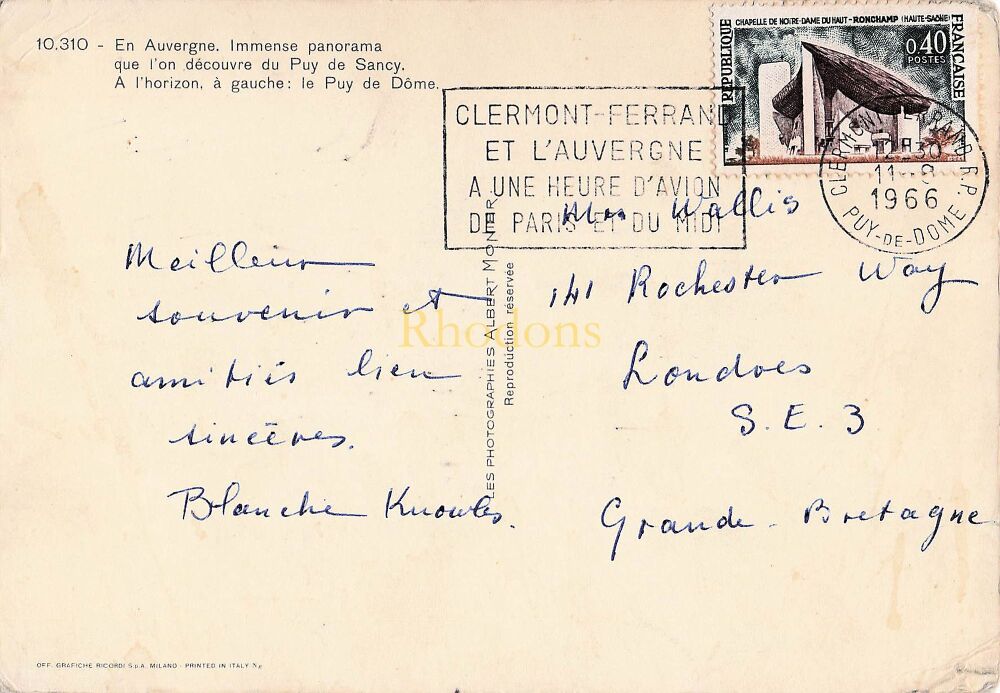 10.310 - En Auvergne. Immense panorama
que l'on découvre du Puy de Sancy.
A l'horizon, à gauche: le Puy de Dôme.
CHAPELLE DE NOTRE-DAME DU HAUT - RONCHAMP (HAUTE-SAÔNE)
RÉPUBLIQUE
FRANÇAISE
0,40
POSTES
CLERMONT-FERRAND
ET L'AUVERGNE
A UNE HEURE D'AVION
DE PARIS ET DU MIDI
CLERMONT-FERRAND R.P.
12-30
11-9
1966
PUY-DE-DOME
Meilleur
souvenir et
amitiés bien
sincères.
Blanche Knowles.
LES PHOTOGRAPHIES ALBERT MONIER
Reproduction réservée
Rhodons
Mrs Wallis
141 Rochester Way
Londres
S.E.3
Grande-Bretagne
OFF. GRAFICHE RICORDI S.p.A. MILANO - PRINTED IN ITALY